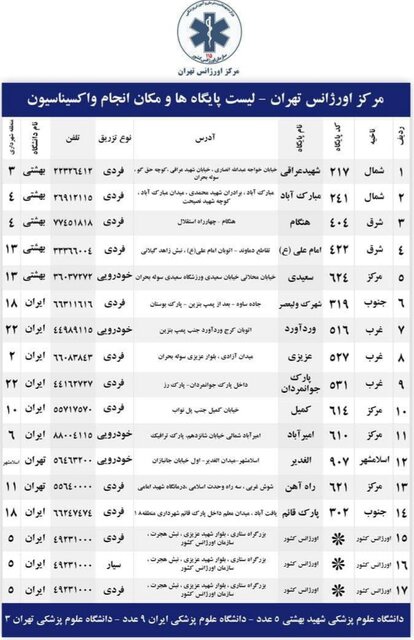 ۱۱۵
مرکز اورژانس تهران
مرکز اورژانس تهران - لیست پایگاه ها و مکان انجام واکسیناسیون
ردیف ناحیه کد پایگاه نام پایگاه آدرس نوع تزریق تلفن نام دانشگاه منطقه شهرداری
۱ شمال ۲۱۷ شهیدعراقی خیابان خواجه عبدالله انصاری ، خیابان شهید عراقی ، کوچه حق گو ، سوله بحران فردی ۲۲۳۲۶۴۱۲ بهشتی ۳
۲ شمال ۲۴۱ مبارک آباد مبارک آباد ، برادران شهید محمدی ، میدان مبارک آباد ، کوچه شهید نصیحت فردی ۲۶۹۱۲۱۱۵ بهشتی ۴
۳ شرق ۴۰۴ هنگام هنگام - چهارراه استقلال فردی ۷۷۴۵۱۸۱۸ بهشتی ۴
۴ شرق ۴۲۲ امام علی (ع) تقاطع دماوند - اتوبان امام علی(ع) ، نبش زاهد گیلانی فردی ۳۳۳۶۶۰۰۴ بهشتی ۱۳
۵ مرکز ۶۲۴ سعیدی خیابان محلاتی خیابان سعیدی ورزشگاه سعیدی سوله بحران خودرویی ۳۶۰۳۷۲۷۲ بهشتی ۱۳
۶ جنوب ۳۱۹ شهرک ولیعصر جاده ساوه - بعد از پمپ بنزین - پارک بوستان فردی ۶۶۳۱۱۶۱۶ ایران ۱۸
۷ غرب ۵۱۶ وردآورد اتوبان کرج وردآورد جنب پمپ بنزین خودرویی ۴۴۹۸۹۱۱۵ ایران ۲۲
۸ غرب ۵۲۷ عزیزی میدان آزادی ، بلوار عزیزی سوله بحران فردی ۶۶۰۸۳۸۴۳ ایران ۲
۹ غرب ۵۳۱ پارک جوانمردان داخل پارک جوانمردان - پارک رز فردی ۴۴۱۶۲۷۲۷ ایران ۲۲
۱۰ مرکز ۶۱۴ کمیل خیابان کمیل جنب پل نواب فردی ۵۵۷۱۷۵۷۰ ایران ۱۰
۱۱ مرکز ۶۱۰ امیرآباد امیرآباد شمالی خیابان شانزدهم، پارک ترافیک خودرویی ۸۸۰۰۴۱۱۵ ایران ۶
۱۲ اسلامشهر ۹۰۷ الغدیر اسلامشهر-میدان الغدیر- اول خیابان جانبازان خودرویی ۵۶۴۶۳۲۰۰ تهران اسلامشهر
۱۳ مرکز ۶۲۱ راه آهن شوش غربی ، سه راه وحدت اسلامی ،درمانگاه شهید امامی فردی ۵۵۶۴۰۰۰۰ تهران ۱۱
۱۴ جنوب ۳۰۲ پارک قائم یافت آباد ، میدان معلم داخل پارک قائم شهرداری منطقه۱۸ فردی ۶۶۲۴۷۴۷۴ ایران ۱۸
۱۵ اورژانس کشور اورژانس کشور بزرگراه ستاری ، بلوار شهید عزیزی ، نبش هجرت ، سازمان اورژانس کشور فردی ۴۹۲۳۱۰۰۰ ایران ۵
۱۶ اورژانس کشور اورژانس کشور بزرگراه ستاری ، بلوار شهید عزیزی ، نبش هجرت ، سازمان اورژانس کشور سیار ۴۹۲۳۱۰۰۰ ایران ۵
۱۷ اورژانس کشور اورژانس کشور بزرگراه ستاری ، بلوار شهید عزیزی ، نبش هجرت ، سازمان اورژانس کشور فردی ۴۹۲۳۱۰۰۰ ایران ۵
دانشگاه علوم پزشکی شهید بهشتی ۵ عدد - دانشگاه علوم پزشکی ایران ۹ عدد - دانشگاه علوم پزشکی تهران ۳